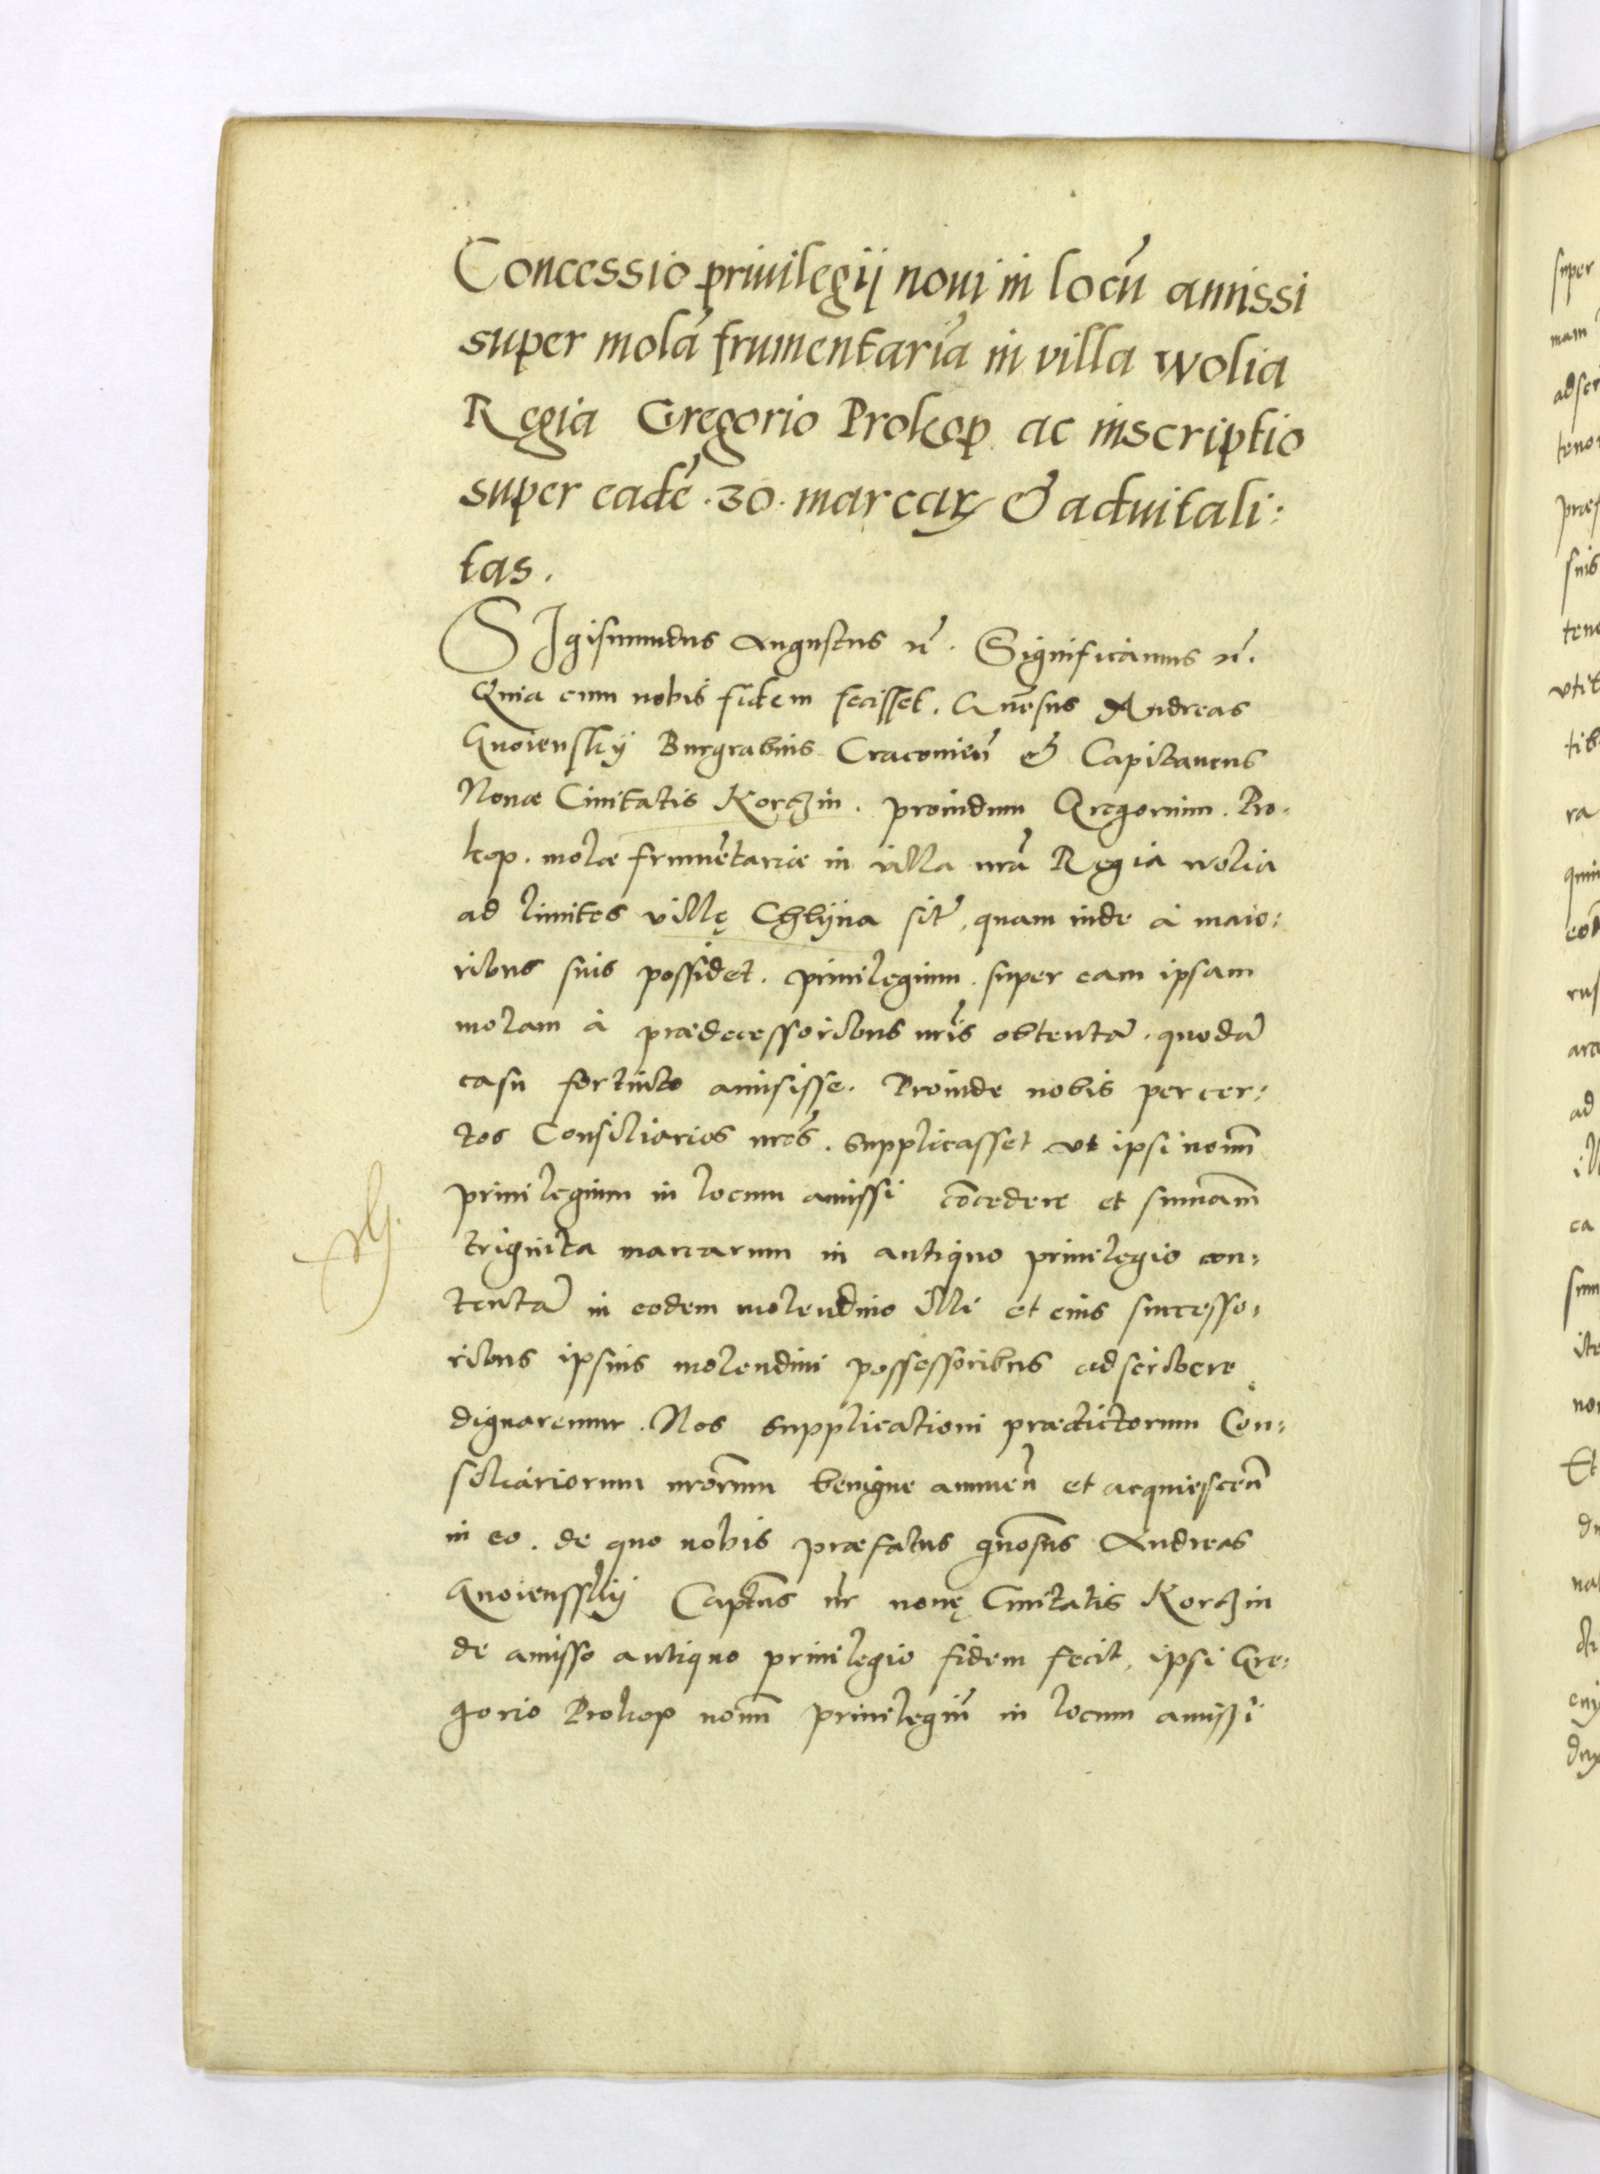 Concessio priuilegij noui in locũ amissi
super molã frumentariã in villa wolia
Regia Gregorio Prokop ac inscriptio
super eadẽ .30. marcaꝝ & aduitali:
tas.
SIgismundus Augustus ꝛc̃. Significamus ꝛc̃.
Quia cum nobis fidem fecisset. Gñosus Andreas
Gnoiensky Burgrabius Cracouieñ & Capitaneus
Nouæ Ciuitatis Korczin. prouidum Gregorium. Pro-
kop. molæ frumẽtariæ in villa nrã Regia wolia
ad limites villę Chlyna sit̃, quam inde à maio:
ribus suis possidet. priuilegium. super eam ipsam
molam à prædecessoribus nrĩs obtentã. quodã
casu fortuito amisisse. Proinde nobis per cer:
tos Consiliarios nrõs. supplicasset vt ipsi nouũ
priuilegium in locum amissi cõcedere et summam̃
triginta marcarum in antiquo priuilegio con:
tentã in eodem molendino illi et eius successo:
ribus ipsius molendini possessoribus adscribere
dignaremur. Nos supplicationi prædictorum Con:
siliariorum nrõrum benigne annueñ et acquiesceñ
in eo. de quo nobis præfatus gñosus Andreas
Gnoiensskij Capt̃ns nr̃ nouę Ciuitatis Korczin
de amisso antiquo priuilegio fidem fecit, ipsi Gre:
gorio Prokop nouũ priuilegiũ in locum amissi